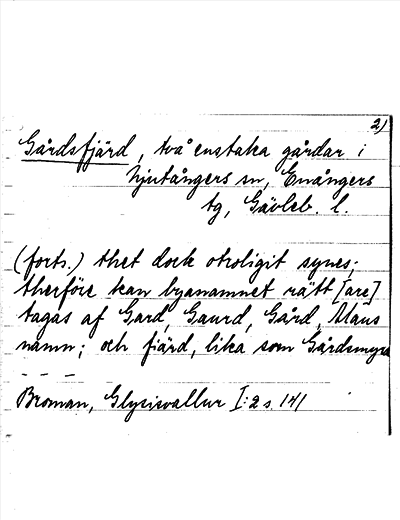 2)
Gårdsfjärd, två enstaka gårdar i
Njutångers sn, Enångers
tg, Gävleb. l.
(forts.) thet dock otroligit synes;
therföre kan byanamnet rätt [are]
tagas af Gard, Gaurd, Gård, Mans
namn; och fjärd, lika som Gårdsmyra
- - -
Broman, Glysisvallur I:2 s. 141